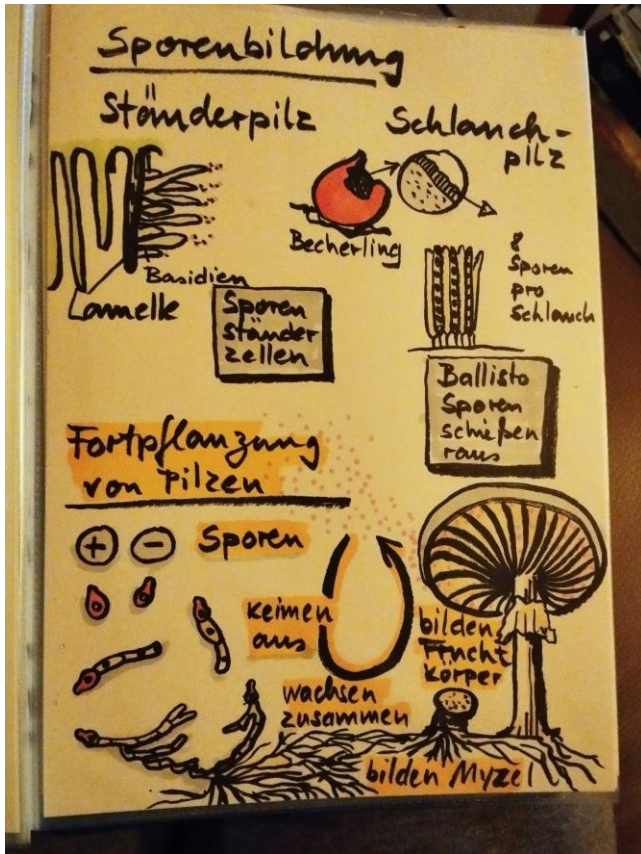 Sporenbildung
Ständerpilz
Schlauch-
pilz
Becherling
Basidien
Lamelle
8
Sporen
pro
Schlauch
Sporen
ständer
zellen
Ballisto
Sporen
schießen
raus
Fortpflanzung
von Pilzen
+ −
Sporen
keimen
aus
bilden
Frucht
körper
wachsen
zusammen
bilden Myzel